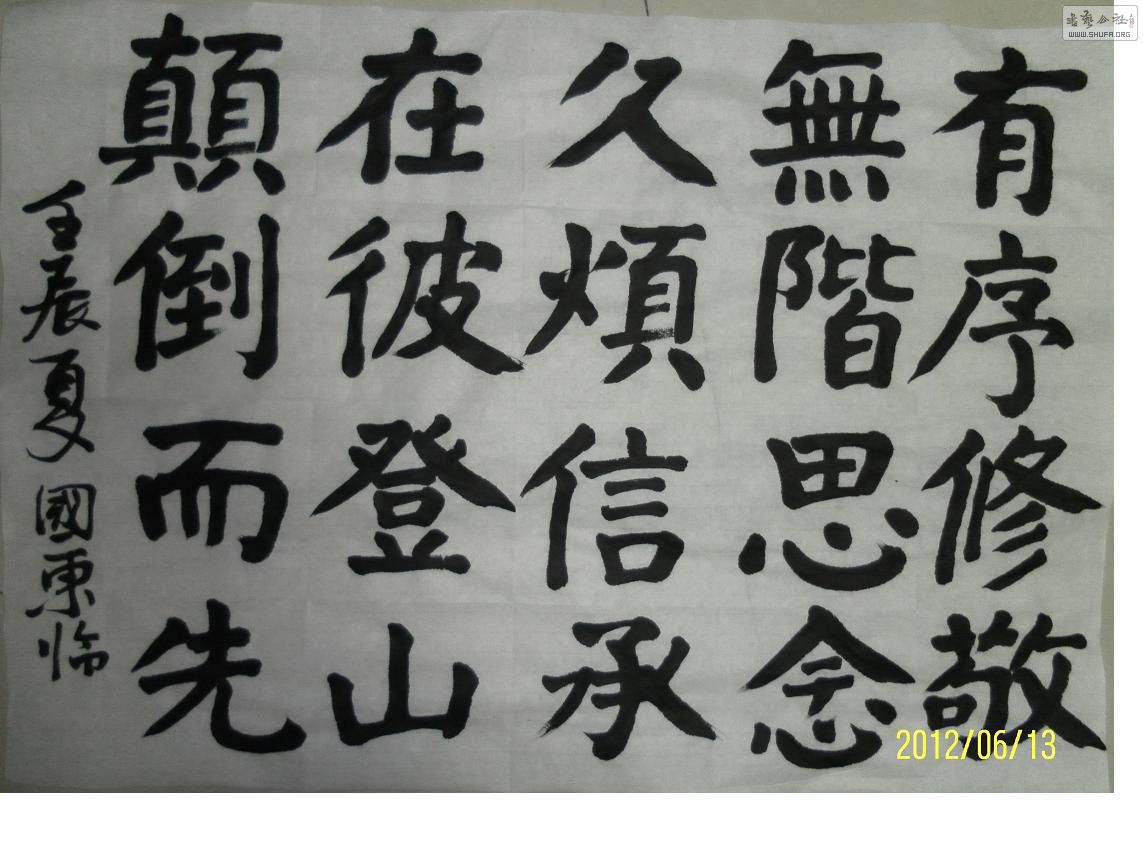 有序修敬
無階思念
久煩信承
在彼登山
顛倒而先
壬辰夏國東臨
2012/06/13
WWW.SHUFA.ORG